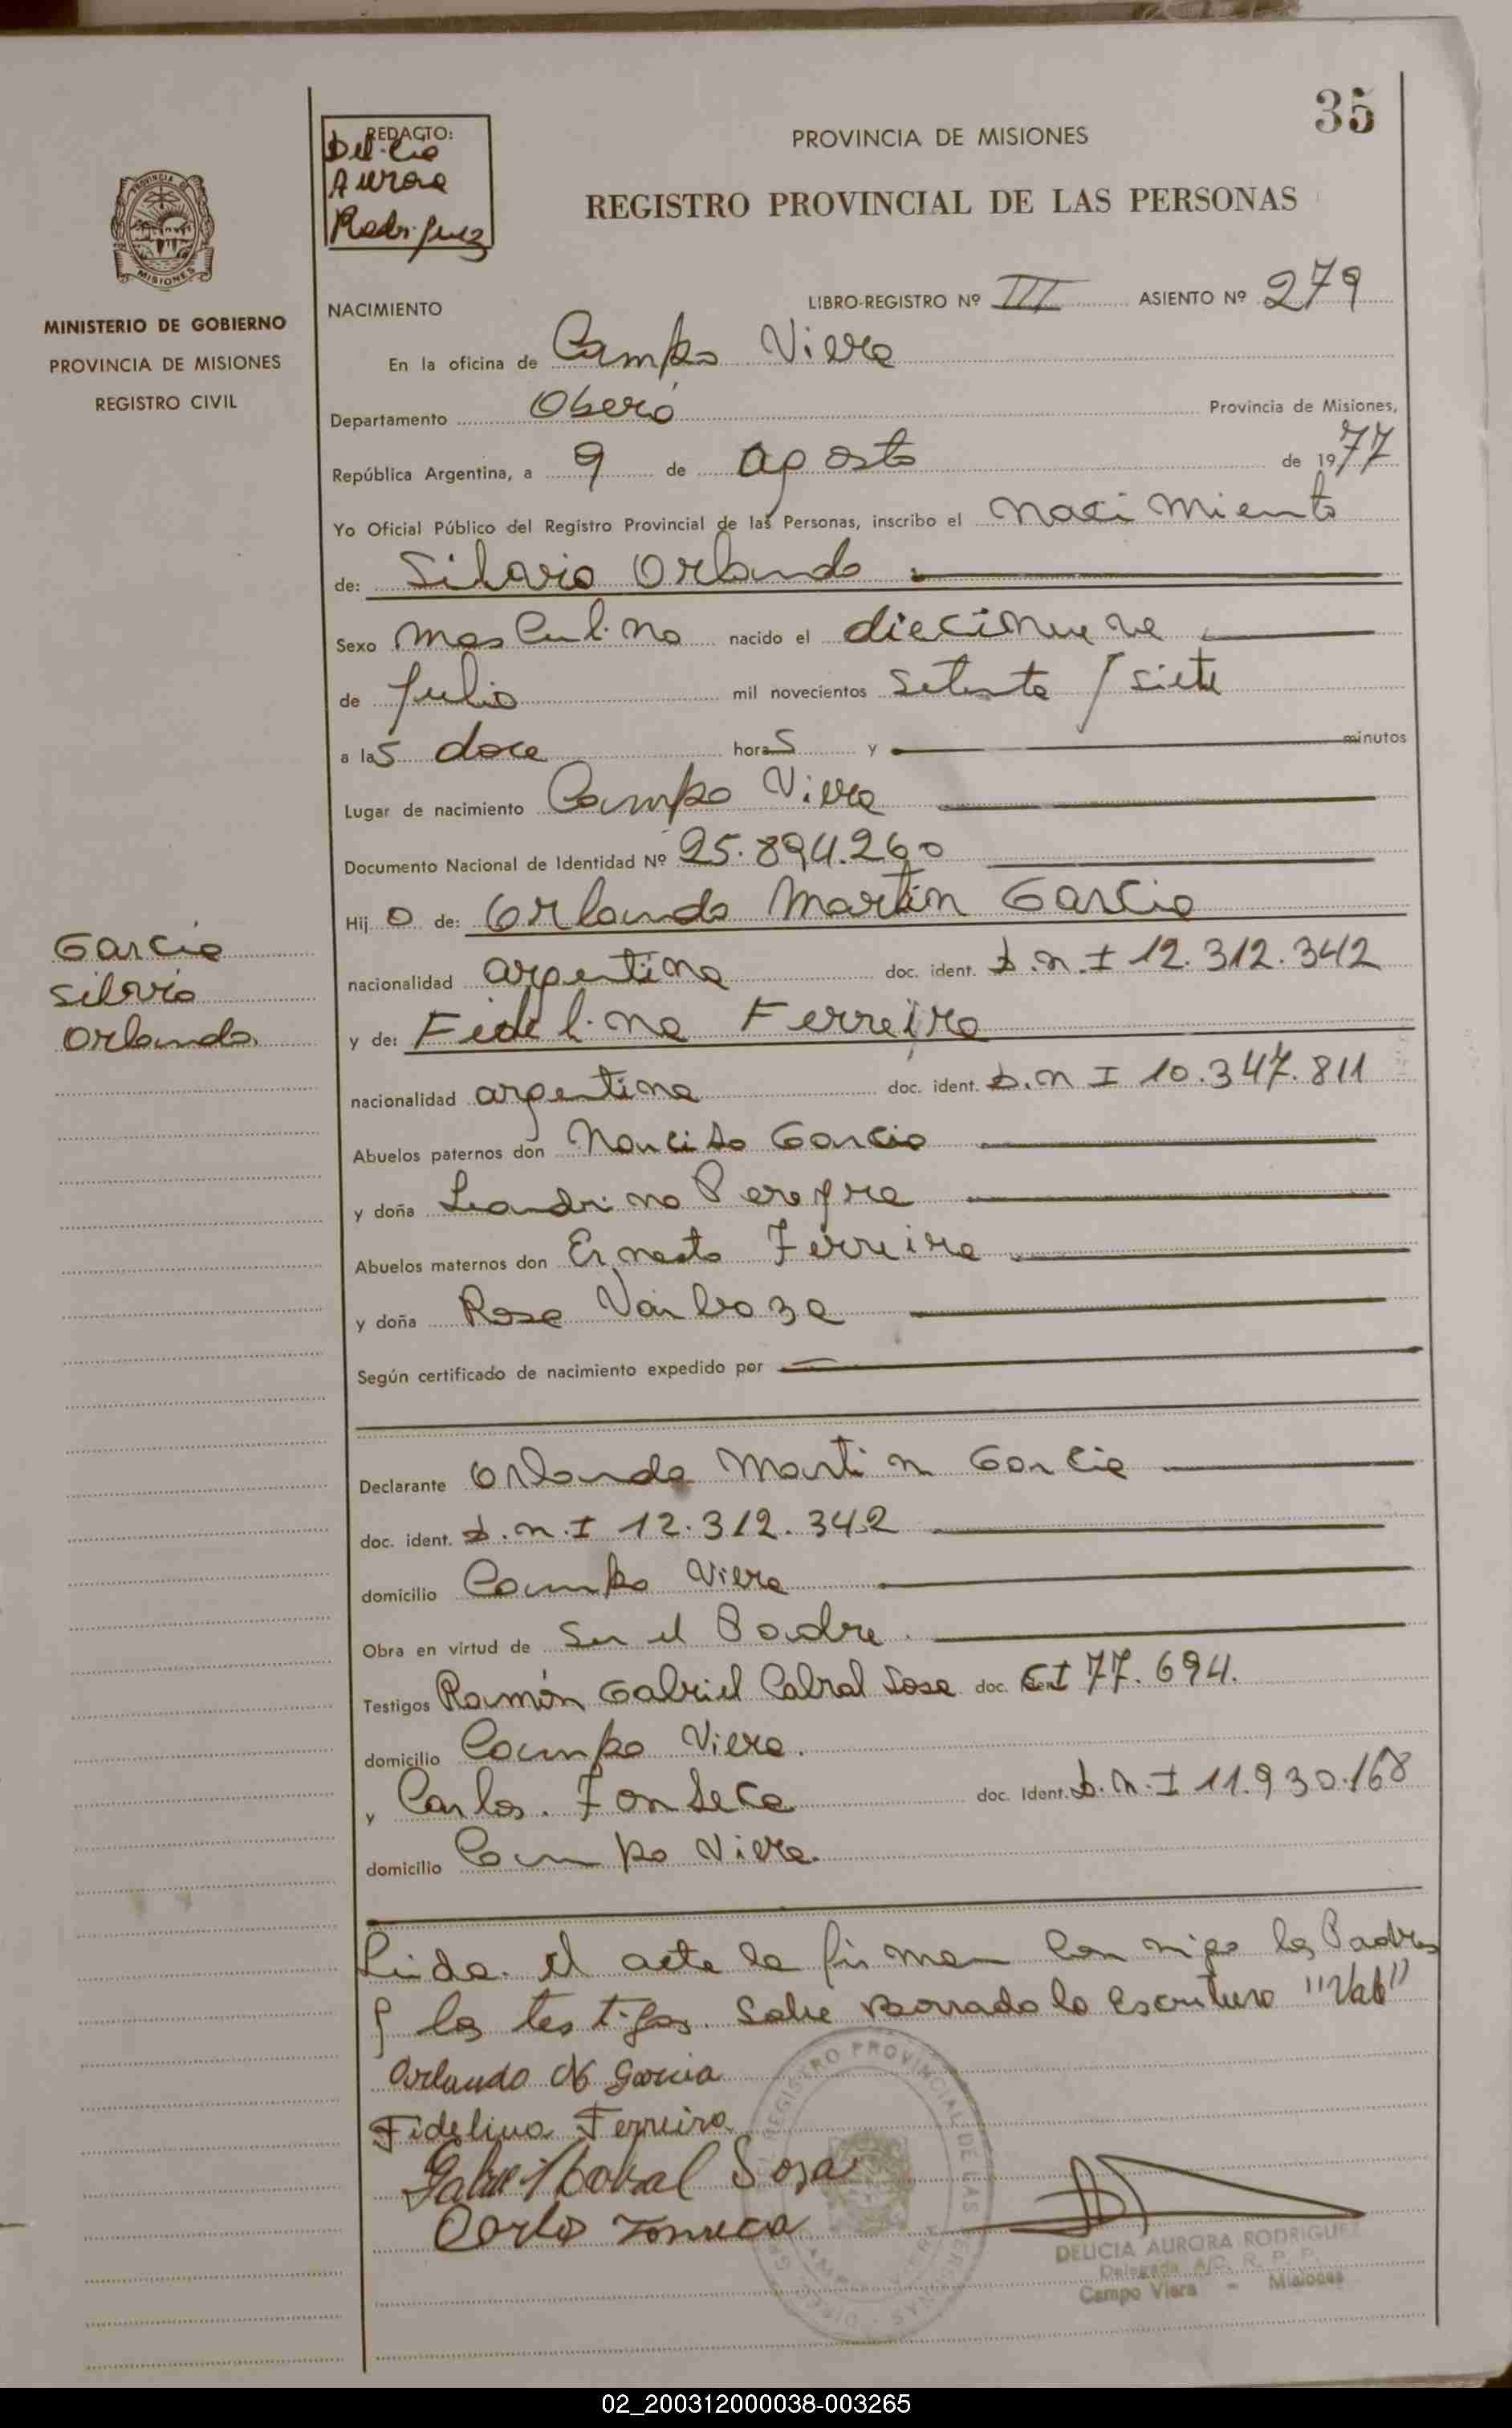 35
REDACTO:
Delicia
Aurora
Rodriguez
PROVINCIA DE MISIONES
REGISTRO PROVINCIAL DE LAS PERSONAS
PROVINCIA DE
MISIONES
MINISTERIO DE GOBIERNO
PROVINCIA DE MISIONES
REGISTRO CIVIL
NACIMIENTO LIBRO-REGISTRO Nº III ASIENTO Nº 279
En la oficina de Campo Viera
Departamento Oberá Provincia de Misiones,
República Argentina, a 9 de agosto de 1977
Yo Oficial Público del Registro Provincial de las Personas, inscribo el nacimiento
de: Silvario Orlando
Sexo masculino nacido el diecinueve
de Julio mil novecientos setenta y siete
a las doce horas y minutos
Lugar de nacimiento Campo Viera
Documento Nacional de Identidad Nº 25.894.260
Hijo de: Orlando Martin Garcia
Garcia
Silvio
Orlando
nacionalidad argentina doc. ident. D.N.I 12.312.342
y de: Fidelina Ferreira
nacionalidad argentina doc. ident. D.N I 10.347.811
Abuelos paternos don Narciso Garcia
y doña Leandrina Pereyra
Abuelos maternos don Ernesto Ferreira
y doña Rosa Varboza
Según certificado de nacimiento expedido por
Declarante Orlando Martin Garcia
doc. ident. D.N.I 12.312.342
domicilio Campo Viera
Obra en virtud de Ser el Padre
Testigos Ramón Gabriel Cabral Sosa doc. CI 77.694.
domicilio Campo Viera.
y Carlos Fonseca doc. Ident. D.N.I 11.930.168
domicilio Campo Viera.
Leida el acta la firman conmigo los Padres
y los testigos. Sobre borrado la escritura "Vale"
Orlando M Garcia
Fidelina Ferreira
Gabriel Cabral Sosa
Carlos Fonseca
REGISTRO PROVINCIAL DE LAS PERSONAS
DELICIA AURORA RODRIGUEZ
Delegada A/C. R. P. P.
Campo Viera - Misiones
02_200312000038-003265